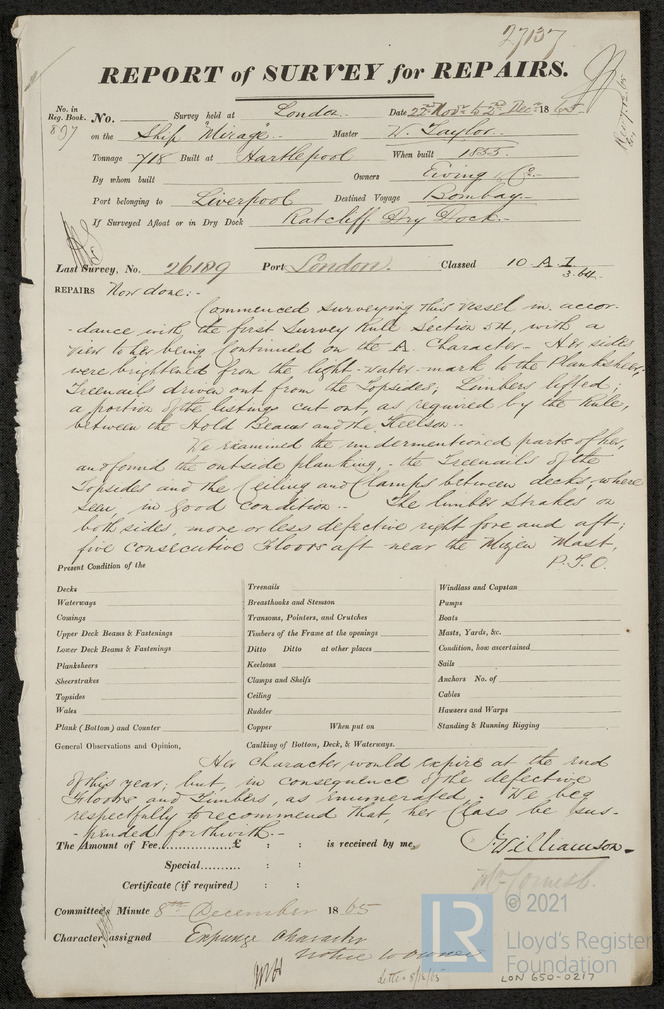 27137
REPORT of SURVEY for REPAIRS.
No. in Reg. Book. No. Survey held at London Date 22nd Novr to 2nd Decr 1865
897 on the Ship "Mirage" Master W. Taylor
Tonnage 718 Built at Hartlepool When built 1855.
By whom built Owners Ewing & Co.
Port belonging to Liverpool Destined Voyage Bombay
If Surveyed Afloat or in Dry Dock Ratcliff Dry Dock.
Last Survey, No. 26189 Port London. Classed 10 A.1
3.64
REPAIRS Now done:-
Commenced surveying this Vessel in accor-
-dance with the first Survey Rule Section 54, with a
view to her being Continued on the A. Character - Her sides
were brightened from the light-water-mark to the Planksheer;
Treenails driven out from the Topsides; Limbers lifted;
a portion of the listings cut out, as required by the Rule,
between the Hold Beams and the Keelson.
We examined the undermentioned parts of her,
and found the outside planking, - the Treenails of the
Topsides and the Ceiling and Clamps between decks, where
seen, in good condition. The limber strakes on
both sides, more or less defective right fore and aft;
five consecutive Floors aft near the Mizen Mast,
P.T.O.
Present Condition of the
Decks Treenails Windlass and Capstan
Waterways Breasthooks and Stemson Pumps
Comings Transoms, Pointers, and Crutches Boats
Upper Deck Beams & Fastenings Timbers of the Frame at the openings Masts, Yards, &c.
Lower Deck Beams & Fastenings Ditto Ditto at other places Condition, how ascertained
Planksheers Keelsons Sails
Sheerstrakes Clamps and Shelfs Anchors No. of
Topsides Ceiling Cables
Wales Rudder Hawsers and Warps
Plank (Bottom) and Counter Copper When put on Standing & Running Rigging
General Observations and Opinion, Caulking of Bottom, Deck, & Waterways.
Her Character would expire at the end
of this year; but, in consequence of the defective
Floors and Timbers, as enumerated, - We beg
respectfully to recommend that, her Class be sus-
-pended forthwith.-
The Amount of Fee......£ : : is received by me, J. Williamson.
Special.......... : :
Certificate (if required) : :
Committee's Minute 8th December 1865
Character assigned Expunge Character
Notice to Owner
Letter 8/12/65
LON 650-0217
LR
© 2021
Lloyd's Register
Foundation